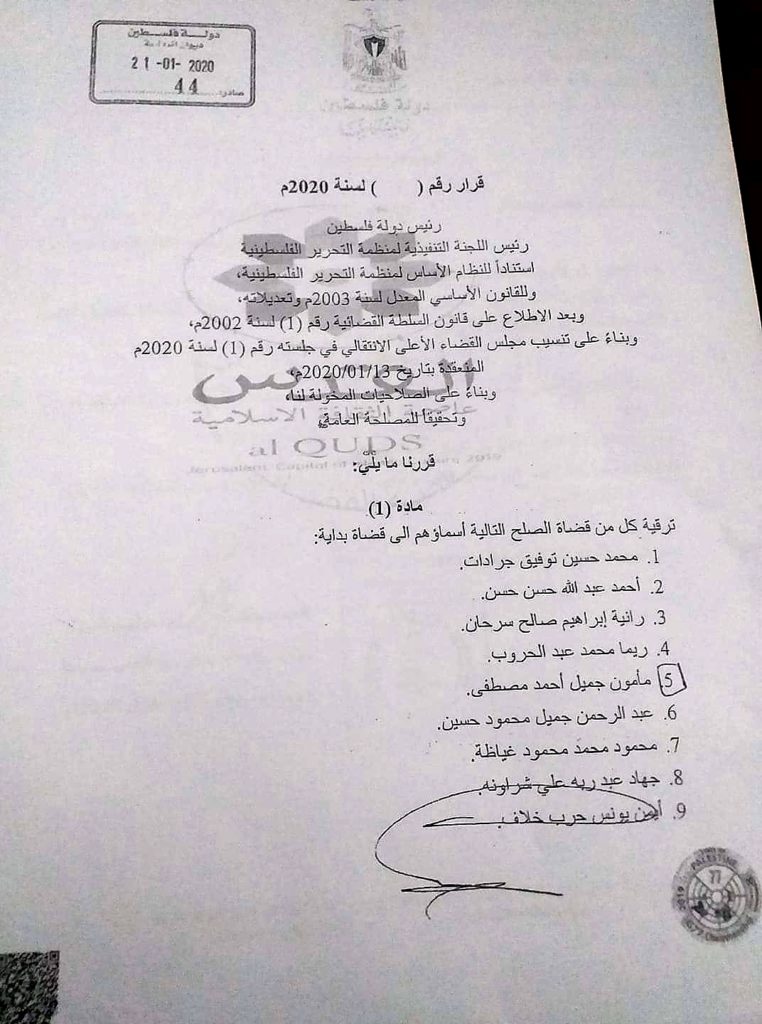 دولة فلسطين
21-01-2020
صادر: 44
دولة فلسطين
قرار رقم ( ) لسنة 2020م
رئيس دولة فلسطين
رئيس اللجنة التنفيذية لمنظمة التحرير الفلسطينية
استناداً للنظام الأساس لمنظمة التحرير الفلسطينية،
وللقانون الأساسي المعدل لسنة 2003م وتعديلاته،
وبعد الاطلاع على قانون السلطة القضائية رقم (1) لسنة 2002م،
وبناءً على تنسيب مجلس القضاء الأعلى الانتقالي في جلسته رقم (1) لسنة 2020م
المنعقدة بتاريخ 2020/01/13م،
وبناءً على الصلاحيات المخولة لنا،
وتحقيقاً للمصلحة العامة،
القدس
عاصمة الثقافة الاسلامية
al QUDS
Jerusalem, Capital of 2019
قررنا ما يلي:
مادة (1)
ترقية كل من قضاة الصلح التالية أسماؤهم الى قضاة بداية:
1. محمد حسين توفيق جرادات.
2. أحمد عبد الله حسن حسن.
3. رانية إبراهيم صالح سرحان.
4. ريما محمد عبد الحروب.
5. مأمون جميل أحمد مصطفى.
6. عبد الرحمن جميل محمود حسين.
7. محمود محمد محمود غياظة.
8. جهاد عبد ربه علي شراونه.
9. أيمن يونس حرب خلاف.
PALESTINE
77
2019